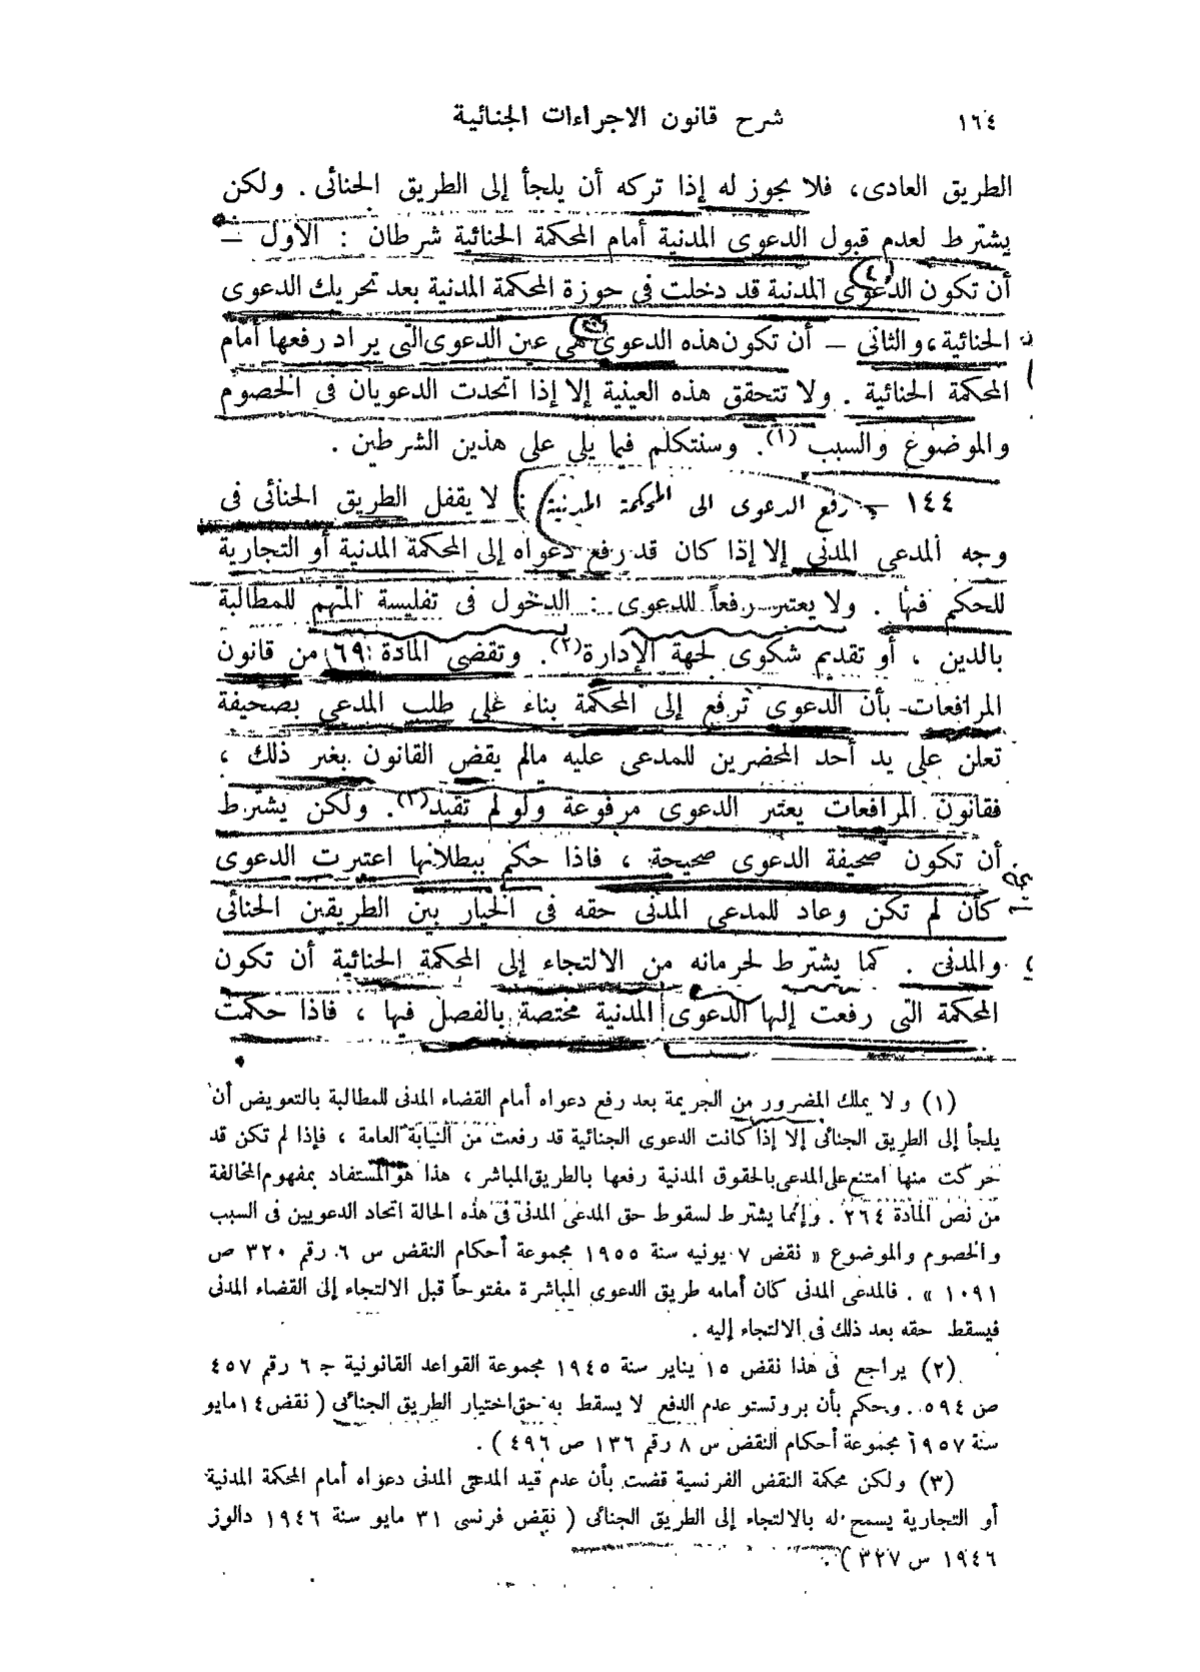 ١٦٤
شرح قانون الاجراءات الجنائية
الطريق العادى، فلا يجوز له إذا تركه أن يلجأ إلى الطريق الجنائى . ولكن
يشترط لعدم قبول الدعوى المدنية أمام المحكمة الجنائية شرطان : الأول –
أن تكون الدعوى المدنية قد دخلت فى حوزة المحكمة المدنية بعد تحريك الدعوى
الجنائية، والثانى – أن تكون هذه الدعوى هى عين الدعوى التى يراد رفعها أمام
المحكمة الجنائية . ولا تتحقق هذه العينية إلا إذا اتحدت الدعويان فى الخصوم
والموضوع والسبب (١). وسنتكلم فيما يلى على هذين الشرطين .
١٤٤ – رفع الدعوى الى المحكمة المدنية : لا يقفل الطريق الجنائى فى
وجه المدعى المدنى إلا إذا كان قد رفع دعواه إلى المحكمة المدنية أو التجارية
للحكم فيها . ولا يعتبر رفعاً للدعوى : الدخول فى تفليسة المتهم للمطالبة
بالدين ، أو تقديم شكوى لجهة الإدارة(٢). وتقضى المادة ٦٩ من قانون
المرافعات بأن الدعوى ترفع إلى المحكمة بناء على طلب المدعى بصحيفة
تعلن على يد أحد المحضرين للمدعى عليه مالم يقض القانون بغير ذلك ،
فقانون المرافعات يعتبر الدعوى مرفوعة ولو لم تقيد(٣). ولكن يشترط
أن تكون صحيفة الدعوى صحيحة ، فاذا حكم ببطلانها اعتبرت الدعوى
كأن لم تكن وعاد للمدعى المدنى حقه فى الخيار بين الطريقين الجنائى
والمدنى . كما يشترط لحرمانه من الالتجاء إلى المحكمة الجنائية أن تكون
المحكمة التى رفعت إليها الدعوى المدنية مختصة بالفصل فيها ، فاذا حكمت
(١) ولا يملك المضرور من الجريمة بعد رفع دعواه أمام القضاء المدنى للمطالبة بالتعويض أن
يلجأ إلى الطريق الجنائى إلا إذا كانت الدعوى الجنائية قد رفعت من النيابة العامة ، فإذا لم تكن قد
حركت منها امتنع على المدعى بالحقوق المدنية رفعها بالطريق المباشر ، هذا هو المستفاد بمفهوم المخالفة
من نص المادة ٢٦٤ . وإنما يشترط لسقوط حق المدعى المدنى فى هذه الحالة اتحاد الدعويين فى السبب
والخصوم والموضوع « نقض ٧ يونيه سنة ١٩٥٥ مجموعة أحكام النقض س ٦ رقم ٣٢٠ ص
١٠٩١ » . فالمدعى المدنى كان أمامه طريق الدعوى المباشرة مفتوحاً قبل الالتجاء إلى القضاء المدنى
فيسقط حقه بعد ذلك فى الالتجاء إليه .
(٢) يراجع فى هذا نقض ١٥ يناير سنة ١٩٤٥ مجموعة القواعد القانونية ج ٦ رقم ٤٥٧
ص ٥٩٤ . وحكم بأن بروتستو عدم الدفع لا يسقط به حق اختيار الطريق الجنائى ( نقض ١٤ مايو
سنة ١٩٥٧ مجموعة أحكام النقض س ٨ رقم ١٣٦ ص ٤٩٦ ) .
(٣) ولكن محكمة النقض الفرنسية قضت بأن عدم قيد المدعى المدنى دعواه أمام المحكمة المدنية
أو التجارية يسمح له بالالتجاء إلى الطريق الجنائى ( نقض فرنسى ٣١ مايو سنة ١٩٤٦ دالوز
١٩٤٦ س ٣٢٧ ) .